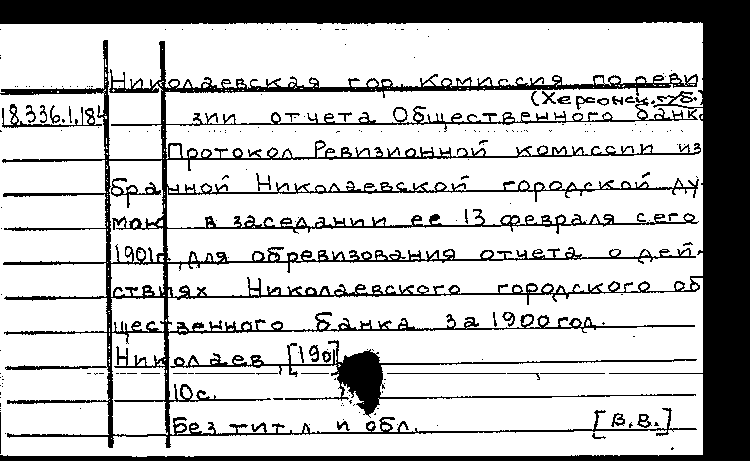 Николаевская гор. комиссия по реви-
(Херсонск. губ.)
18.336.1.184 зии отчета Общественного банка
Протокол Ревизионной комиссии из
бранной Николаевской городской ду-
мою в заседании ее 13 февраля сего
1901г. для обревизования отчета о дей-
ствиях Николаевского городского об
щественного банка за 1900 год.
Николаев, [190
10с.
Без тит. л. и обл. [В.В.]